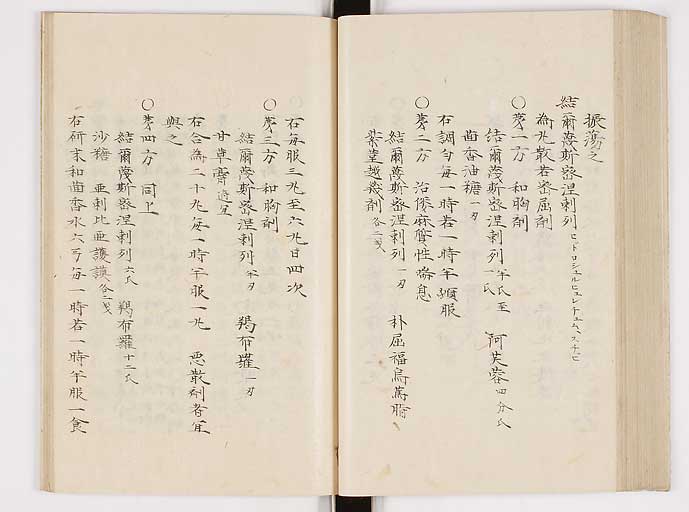 振蕩之
結爾蔑斯密涅剌列 ヒドロシュルヒュレテュム、スチヒ
為丸散若密屈剤
○第一方 和胸剤
結爾蔑斯密涅剌列 半氏至一氏 阿芙蓉 四分氏
茴香油糖 一刄
右調匀毎一時若一時半頓服
○第二方 治倭麻質性喘息
結爾蔑斯密涅剌列 一刄 朴屈福烏篤脂
紫菫越幾剤 各二戔
右毎服三丸至六丸日四次
○第三方 和胸剤
結爾蔑斯密涅剌列 半刄 羯布羅 一刄
甘草膏 適宜
右合為二十丸毎一時半服一丸 悪散剤者宜
與之
○第四方 同上
結爾蔑斯密涅剌列 六氏 羯布羅 十二氏
沙糖 亜剌比亜護謨 各二戔
右研末和茴香水六弓毎一時若一時半服一食